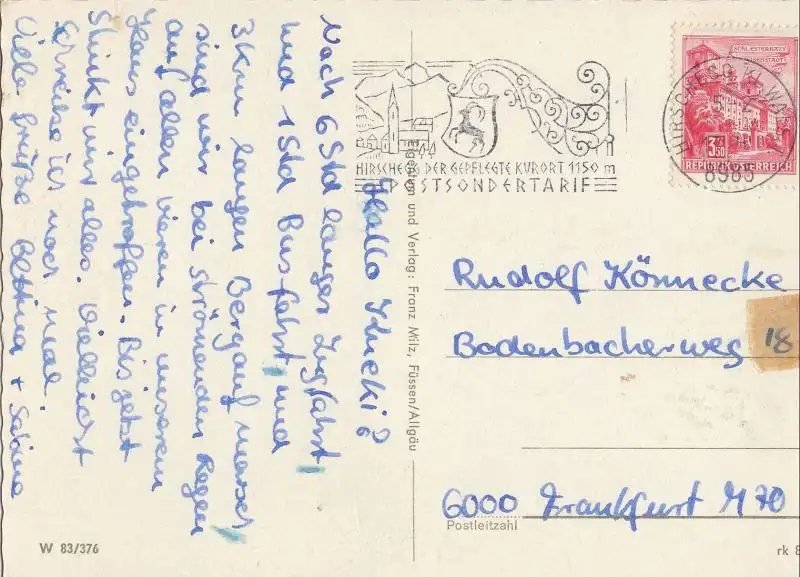 Hallo Knecki?
Nach 6 Std langer Zugfahrt,
und 1 Std Busfahrt, und
3Km langen Bergaufmarsch
sind wir bei strömenden Regen,
auf allen vieren in unserem
Haus eingetroffen. Bis jetzt
stinkt uns alles. Vielleicht
schreibe ich noch mal.
Viele Grüße Bettina + Sabine
W 83/376
Eigentum und Verlag: Franz Milz, Füssen/Allgäu
HIRSCHEGG DER GEPFLEGTE KURORT 1150 m
POSTSONDERTARIF
SCHLOSSTERRAZZE
EISENSTADT
3,50
REPUBLIK ÖSTERREICH
HIRSCHEGG, KLWALS
6986
Rudolf Könnecke
Bodenbacherweg 18
6000 Frankfurt M 70
Postleitzahl
rk 8